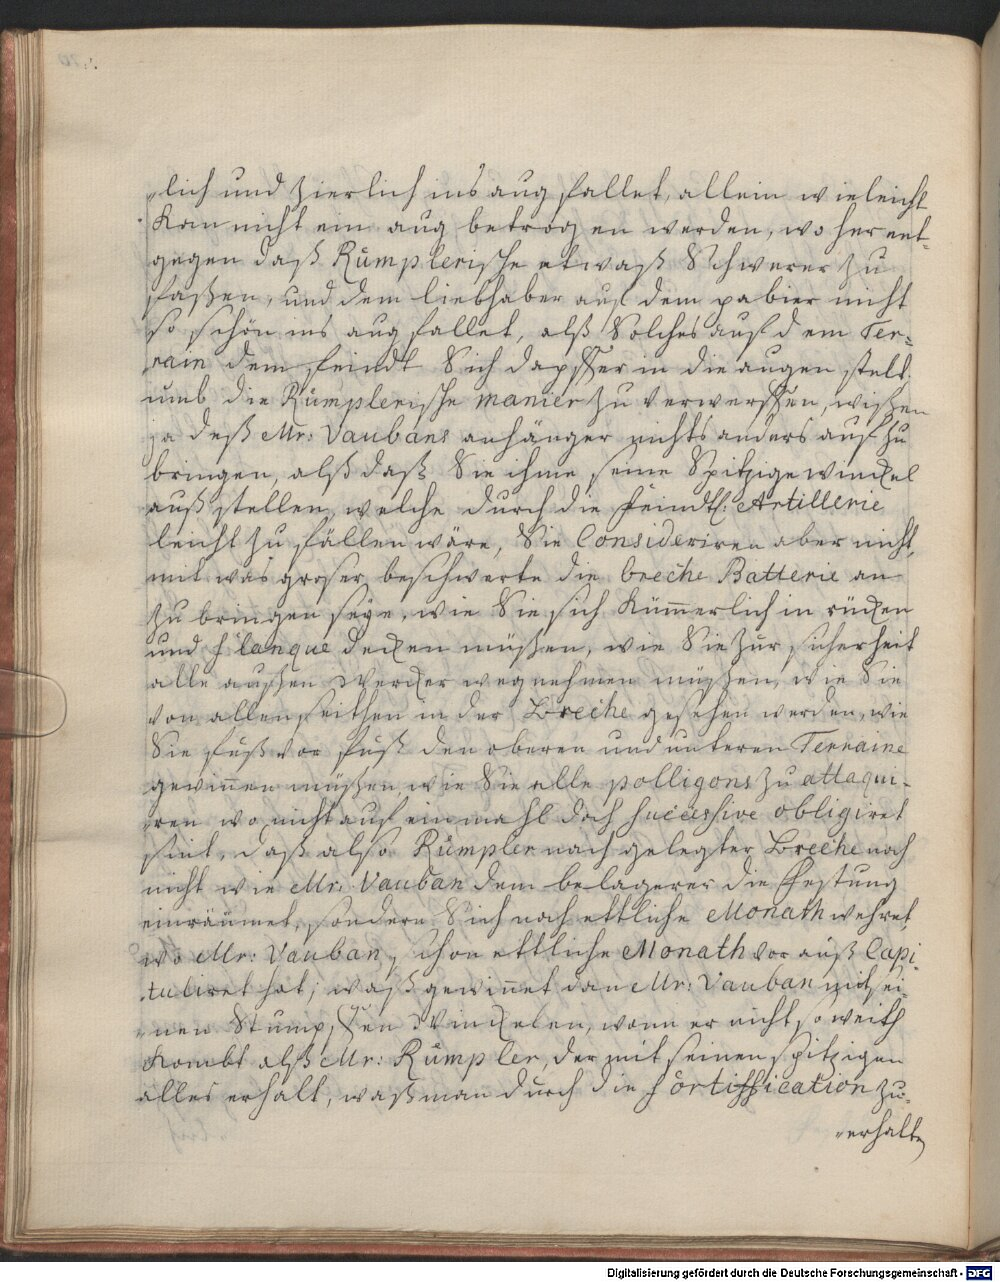 „lich und zierlich ins aug fallet, allein wie leicht
Kan nicht ein aug betrogen werden, wo her ent¬
gegen daß Rümplerische etwaß Schwerer zu
faßen, und dem liebhaber auf dem pabier nicht
so schön ins aug fallet, alß Solches auf dem Ter¬
rain dem feindt Sich dapffer in die augen stelt.
umb die Rümplerische manier zu verwerffen, wißen
ja deß Mr: Vaubans anhänger nichts anders auf zu
bringen, alß daß Sie ihme seine Spitzige winckel
auß stellen, welche durch die feindtl: Artillerie
leicht zu fällen wäre, Sie Consideriren aber nicht,
mit was groser beschwerte die breche Batterie an
zu bringen seye, wie Sie sich Kümmerlich in rücken
und flanque decken müßen, wie Sie zur sicherheit
alle außen Wercker weg nehmen müßen, wie Sie
von allen seithen in der Breche gesehen werden, wie
Sie fuß vor fuß den oberen und unteren Terraine
gewinnen müßen, wie Sie alle polligons zu attaqui¬
„ren wo nicht auf einmahl doch successive obligiret
sint, daß also Rümpler nach gelegter Breche noch
nicht wie Mr: Vauban dem belagerer die Festung
einräumet, sondern Sich noch ettliche Monath wehret,
wo Mr: Vauban, schon ettliche Monath vor auß Capi¬
„tuliret hat; waß gewinnet dan Mr: Vauban mit sei¬
„nen Stumpffen Winckelen, wann er nicht so weith
Kombt alß Mr: Rümpler, der mit seinen spitzigen
alles erhalt, waß man durch die fortiffication zu¬
„erhalten
Digitalisierung gefördert durch die Deutsche Forschungsgemeinschaft - DFG